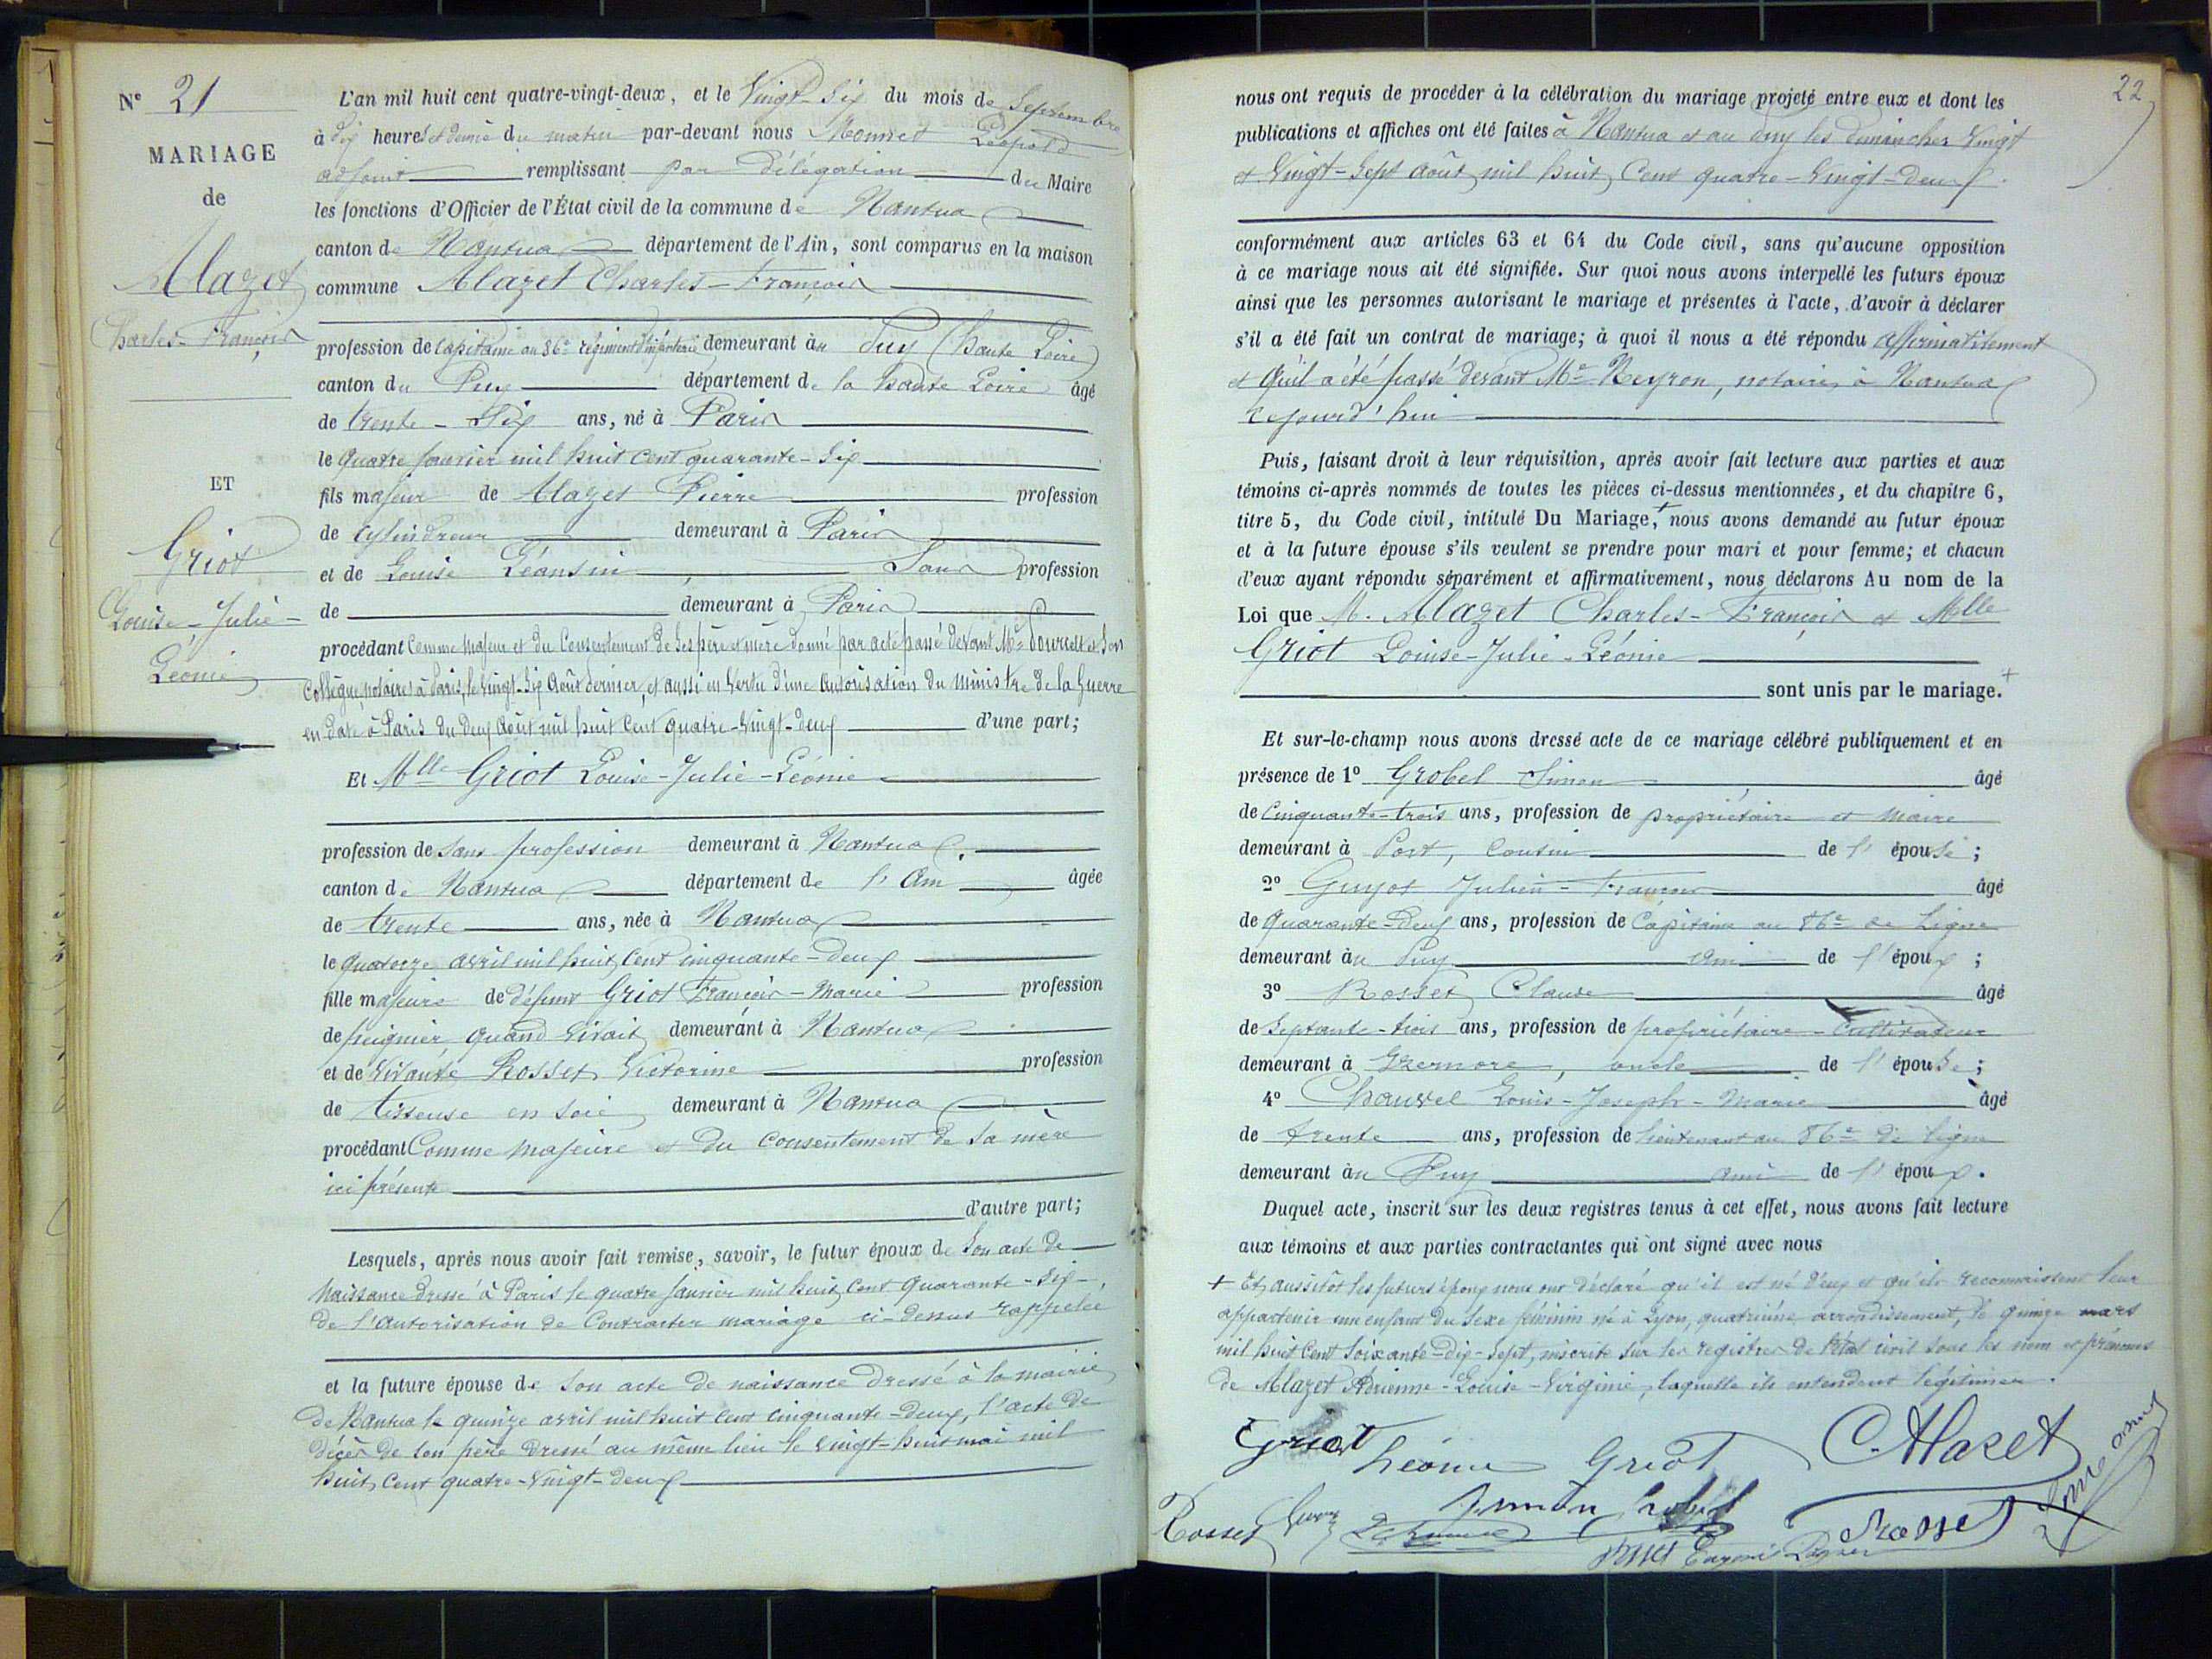 N° 21
MARIAGE
de
Mazet
Charles-François
ET
Griot
Louise-Julie-
Léonie
L'an mil huit cent quatre-vingt-deux, et le Vingt-Six du mois de Septembre
à dix heures et demie du matin par-devant nous Monnet Léopold
adjoint remplissant par délégation du Maire
les fonctions d'Officier de l'État civil de la commune de Nantua
canton de Nantua département de l'Ain, sont comparus en la maison
commune Mazet Charles-François
profession de Capitaine au 86e régiment d'infanterie demeurant au Puy (Haute Loire)
canton du Puy département de la Haute Loire âgé
de trente-Six ans, né à Paris
le quatre janvier mil huit cent quarante-Six
fils majeur de Mazet Pierre profession
de Cylindreur demeurant à Paris
et de Louise Léansin Sans profession
de demeurant à Paris
procédant Comme majeur et du Consentement de Ses père et mère donné par acte passé devant Me et Son
Collègue, notaires à Paris, le vingt-Six Août dernier, et aussi en Vertu d'une Autorisation du Ministre de la Guerre
en date à Paris du deux Août mil huit Cent quatre-vingt-deux d'une part;
Et Mlle Griot Louise-Julie-Léonie
profession de Sans profession demeurant à Nantua
canton de Nantua département de l'Ain âgée
de trente ans, née à Nantua
le quatorze avril mil huit Cent cinquante-deux
fille majeure de défunt Griot François-Marie profession
de peignier quand vivait demeurant à Nantua
et de Vivante Rosset Victorine profession
de tisseuse en soie demeurant à Nantua
procédant Comme majeure et du Consentement de Sa mère
ici présente
d'autre part;
Lesquels, après nous avoir fait remise, savoir, le futur époux de Son acte de
Naissance dressé à Paris le quatre janvier mil huit Cent quarante-Six,
de l'autorisation de Contracter mariage ci-dessus rappelée
et la future épouse de Son acte de naissance dressé à la mairie
de Nantua le quinze avril mil huit cent cinquante-deux, l'acte de
décès de Son père dressé au même lieu le vingt-huit mai mil
huit Cent quatre-vingt-deux
22
nous ont requis de procéder à la célébration du mariage projeté entre eux et dont les
publications et affiches ont été faites à Nantua et au Puy les dimanches vingt
et Vingt-Sept août mil huit Cent quatre-Vingt-deux.
conformément aux articles 63 et 64 du Code civil, sans qu'aucune opposition
à ce mariage nous ait été signifiée. Sur quoi nous avons interpellé les futurs époux
ainsi que les personnes autorisant le mariage et présentes à l'acte, d'avoir à déclarer
s'il a été fait un contrat de mariage; à quoi il nous a été répondu affirmativement
et qu'il a été passé devant Me Neyron, notaire à Nantua
cejourd'hui
Puis, faisant droit à leur réquisition, après avoir fait lecture aux parties et aux
témoins ci-après nommés de toutes les pièces ci-dessus mentionnées, et du chapitre 6,
titre 5, du Code civil, intitulé Du Mariage, + nous avons demandé au futur époux
et à la future épouse s'ils veulent se prendre pour mari et pour femme; et chacun
d'eux ayant répondu séparément et affirmativement, nous déclarons Au nom de la
Loi que M. Mazet Charles-François et Mlle
Griot Louise-Julie-Léonie
sont unis par le mariage. +
Et sur-le-champ nous avons dressé acte de ce mariage célébré publiquement et en
présence de 1° Grobel Simon âgé
de Cinquante-trois ans, profession de propriétaire et Maire
demeurant à Port, Cousin de l'épouse;
2° Guyot Julien-François âgé
de Quarante-Deux ans, profession de Capitaine au 86e de Ligne
demeurant au Puy ami de l'époux;
3° Rosset Claude âgé
de Septante-trois ans, profession de propriétaire-Cultivateur
demeurant à Izernore, oncle de l'épouse;
4° Chauvel Louis-Joseph-Marie âgé
de trente ans, profession de lieutenant au 86e de ligne
demeurant au Puy ami de l'époux.
Duquel acte, inscrit sur les deux registres tenus à cet effet, nous avons fait lecture
aux témoins et aux parties contractantes qui ont signé avec nous
+ Et, aussitôt les futurs époux nous ont déclaré qu'il est né d'eux et qu'ils reconnaissent leur
appartenir un enfant du Sexe féminin né à Lyon, quatrième arrondissement, le quinze mars
mil huit Cent Soixante-dix-Sept, inscrite sur les registres de l'état civil sous les nom et prénoms
de Mazet Adrienne-Louise-Virginie, laquelle ils entendent légitimer.
Griot Léonie Griot C. Mazet
Rosset Simon Grobel Rosset